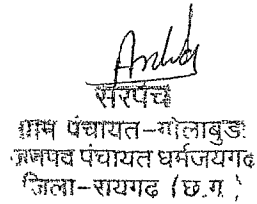 सरपंच
ग्राम पंचायत-गोलाबुड
जनपद पंचायत धर्मजयगढ
जिला-रायगढ (छ.ग.)